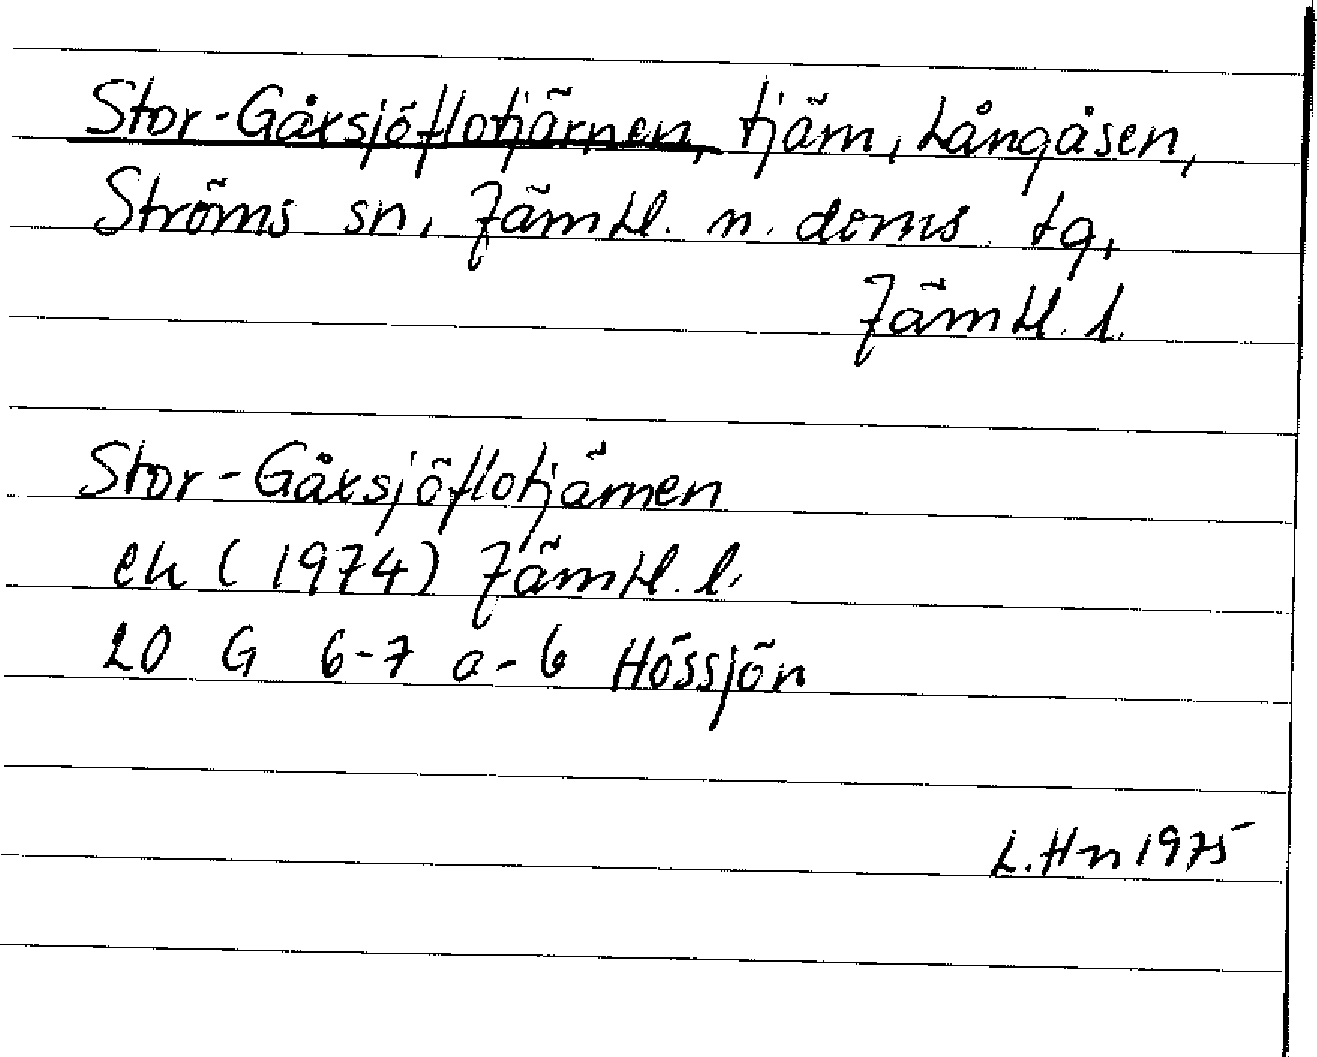 Stor-Gåxsjöflotjärnen, tjärn, Långåsen,
Ströms sn, Jämtl. n. doms. tg,
Jämtl. l.
Stor-Gåxsjöflotjärnen
ek (1974) Jämtl. l.
20 G 6-7 a-b Hössjön
L. Hn 1975